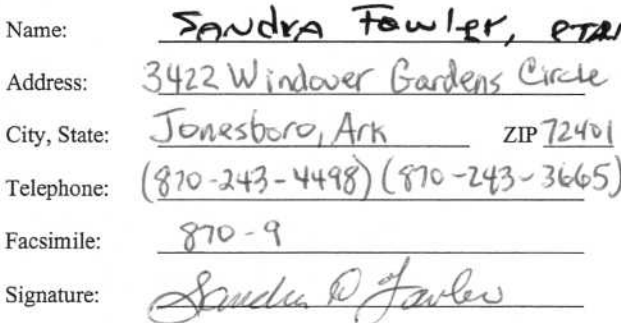 Name: Sandra Fowler,
Address: 3422 Windover Gardens Circle
City, State: Jonesboro, Ark ZIP 72401
Telephone: (870-243-4498) (870-243-3665)
Facsimile: 870-9
Signature: Sandra D Fowler